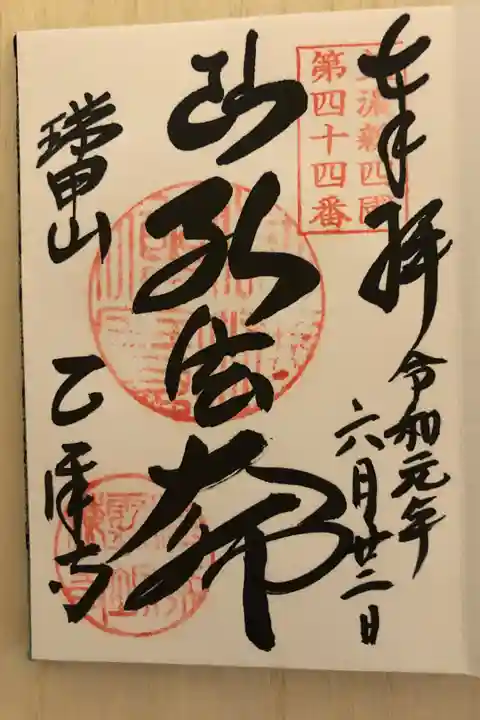 奉拝
令和元年
六月廿二日
美濃新四國
第四十四番
弘法大師
瑞甲山 乙津寺